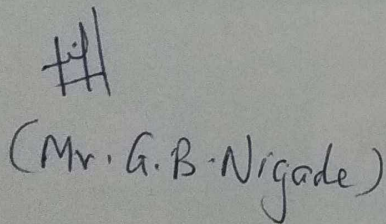 (Mr. G. B. Nigade)